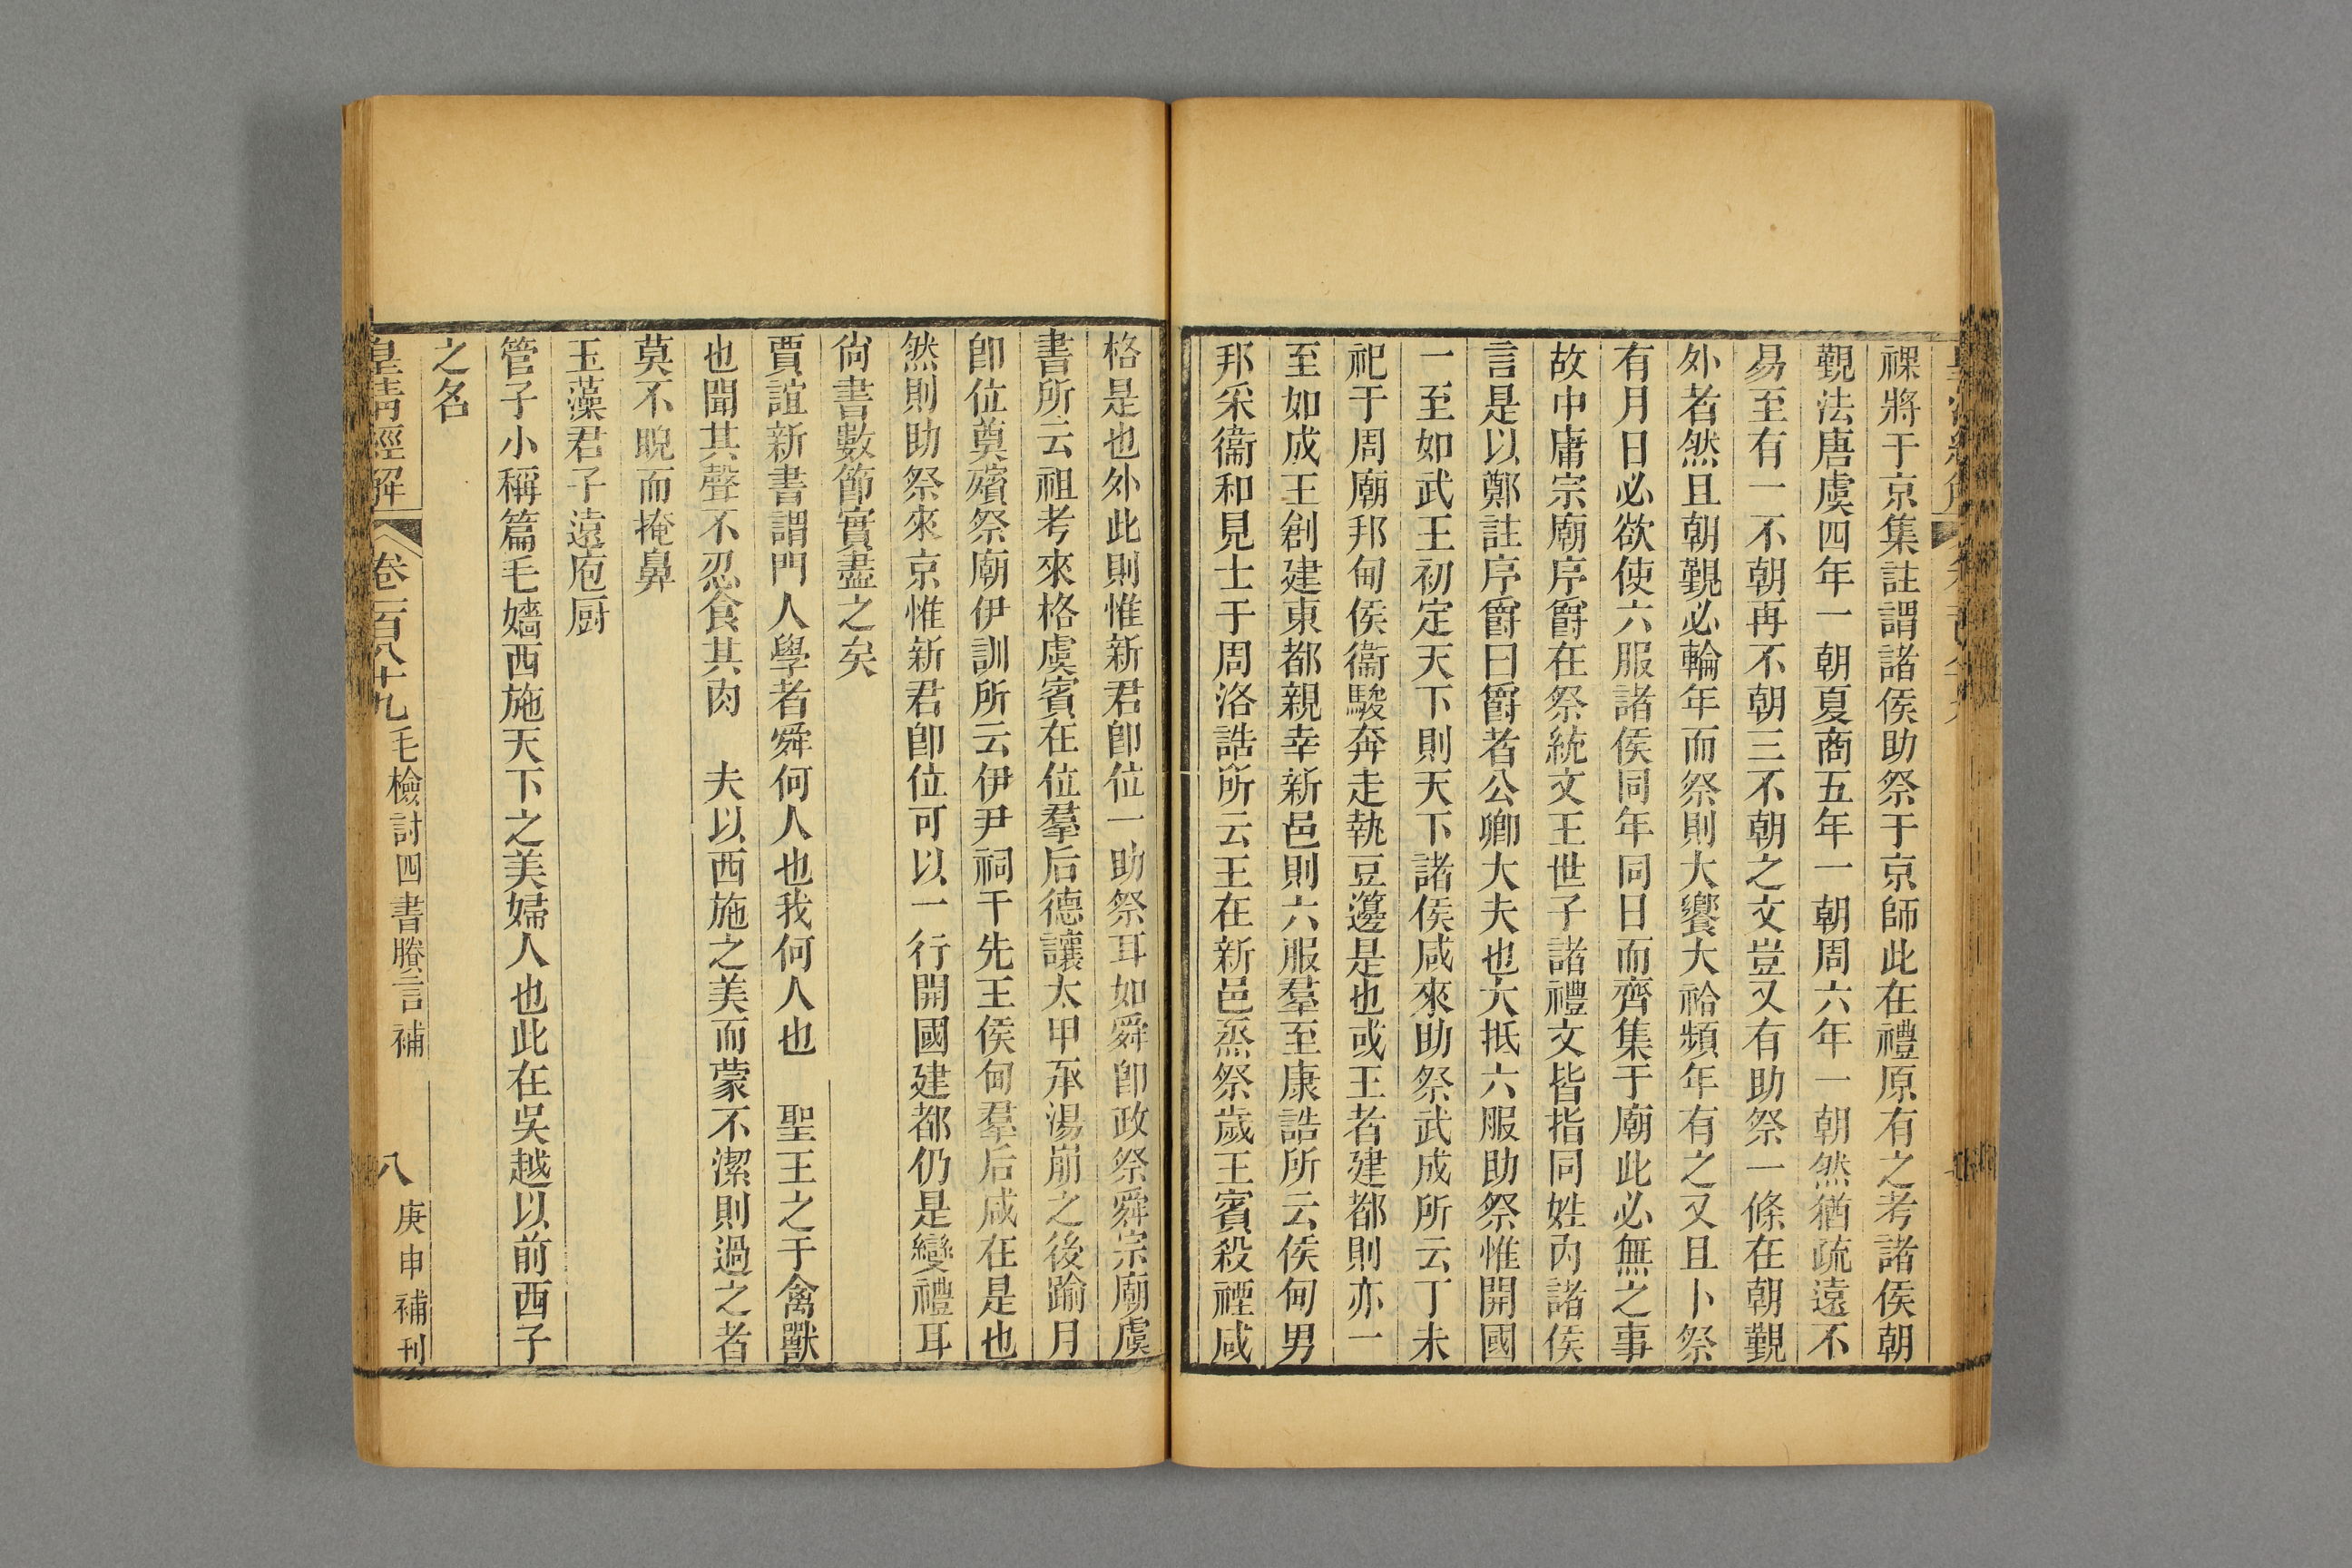 祼將于京集註謂諸侯助祭于京師此在禮原有之考諸侯朝
覲法唐虞四年一朝夏商五年一朝周六年一朝然猶疏遠不
易至有一不朝再不朝三不朝之文豈又有助祭一條在朝覲
外者然且朝覲必輪年而祭則大饗大祫頻年有之又且卜祭
有月日必欲使六服諸侯同年同日而齊集于廟此必無之事
故中庸宗廟序爵在祭統文王世子諸禮文皆指同姓內諸侯
言是以鄭註序爵曰爵者公卿大夫也大抵六服助祭惟開國
一至如武王初定天下則天下諸侯咸來助祭武成所云丁未
祀于周廟邦甸侯衞駿奔走執豆籩是也或王者建都則亦一
至如成王創建東都親幸新邑則六服羣至康誥所云侯甸男
邦采衞和見士于周洛誥所云王在新邑烝祭歲王賓殺禋咸
格是也外此則惟新君卽位一助祭耳如舜卽政祭舜宗廟虞
書所云祖考來格虞賓在位羣后德讓太甲承湯崩之後踰月
卽位奠殯祭廟伊訓所云伊尹祠于先王侯甸羣后咸在是也
然則助祭來京惟新君卽位可以一行開國建都仍是變禮耳
尙書數節實盡之矣
賈誼新書謂門人學者舜何人也我何人也 聖王之于禽獸
也聞其聲不忍食其肉 夫以西施之美而蒙不潔則過之者
莫不睨而掩鼻
玉藻君子遠庖厨
管子小稱篇毛嬙西施天下之美婦人也此在吳越以前西子
之名
皇淸經解 卷一百八十九 毛檢討四書賸言補 八 庚申補刊